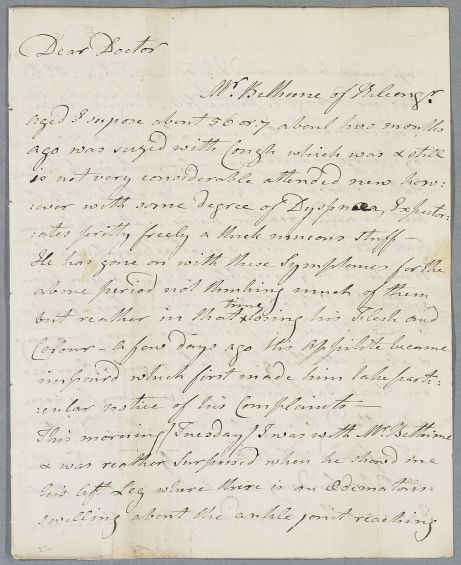 Dear Doctor
Mr. Bethune of Kilcongr.
aged I supose about 56 or 7 about two months
ago was seized with Cough which was & still
is not very considerable attended now how:
:ever with some degree of Dyspnœa, Expector:
:ates pritty freely a thick mucous stuff -
He has gone on with these Symptomes for the
above period not thinking much of them
time
but reather in that x losing his Flesh and
Colour - A few days ago his appitite became
impaird which first made him take parti:
:cular notice of his Complaints -
This morning /Tuesday/ I was with Mr. Bethune
& was reather Surprised when he showd me
his left Leg where there is an Œdomatous
swelling about the ankle joint reaching